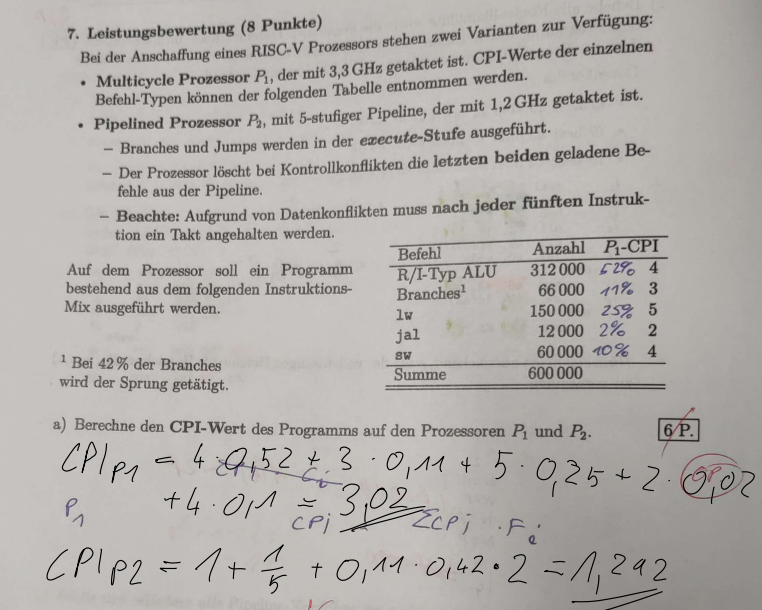 7. Leistungsbewertung (8 Punkte)
Bei der Anschaffung eines RISC-V Prozessors stehen zwei Varianten zur Verfügung:
• Multicycle Prozessor P₁, der mit 3,3 GHz getaktet ist. CPI-Werte der einzelnen
Befehl-Typen können der folgenden Tabelle entnommen werden.
• Pipelined Prozessor P₂, mit 5-stufiger Pipeline, der mit 1,2 GHz getaktet ist.
– Branches und Jumps werden in der execute-Stufe ausgeführt.
– Der Prozessor löscht bei Kontrollkonflikten die letzten beiden geladene Be-
fehle aus der Pipeline.
– Beachte: Aufgrund von Datenkonflikten muss nach jeder fünften Instruk-
tion ein Takt angehalten werden.
Auf dem Prozessor soll ein Programm
bestehend aus dem folgenden Instruktions-
Mix ausgeführt werden.
¹ Bei 42 % der Branches
wird der Sprung getätigt.
Befehl Anzahl P₁-CPI
R/I-Typ ALU 312 000 52% 4
Branches¹ 66 000 11% 3
lw 150 000 25% 5
jal 12 000 2% 2
sw 60 000 10% 4
Summe 600 000
a) Berechne den CPI-Wert des Programms auf den Prozessoren P₁ und P₂. 6 P.
CPI P1 = 4 · 0,52 + 3 · 0,11 + 5 · 0,25 + 2 · 0,02
+ 4 · 0,1 = 3,02
P₁ CPi ΣCPi · Fi
CPI P2 = 1 + 1/5 + 0,11 · 0,42 · 2 = 1,292